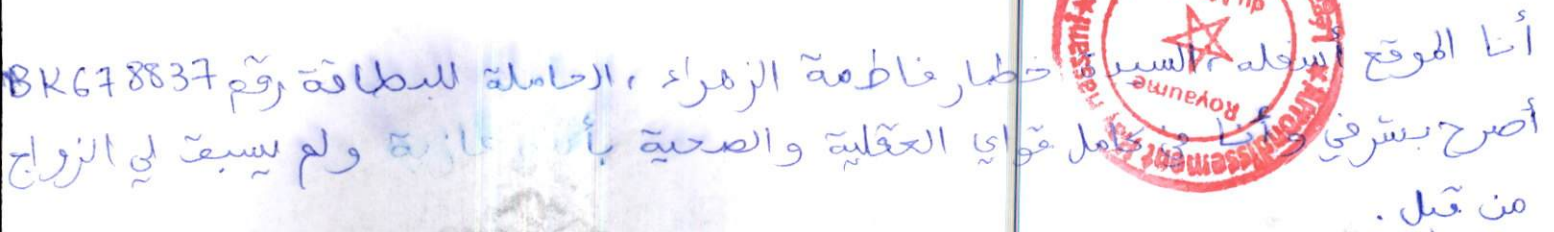 أنا الموقع أسفله، السيدة خطار فاطمة الزهراء، الحاملة للبطاقة رقم BK678837
أصرح بشرفي وأنا في كامل قواي العقلية والصحية بأني عازبة ولم يسبق لي الزواج
من قبل.
Royaume
Arrondissement